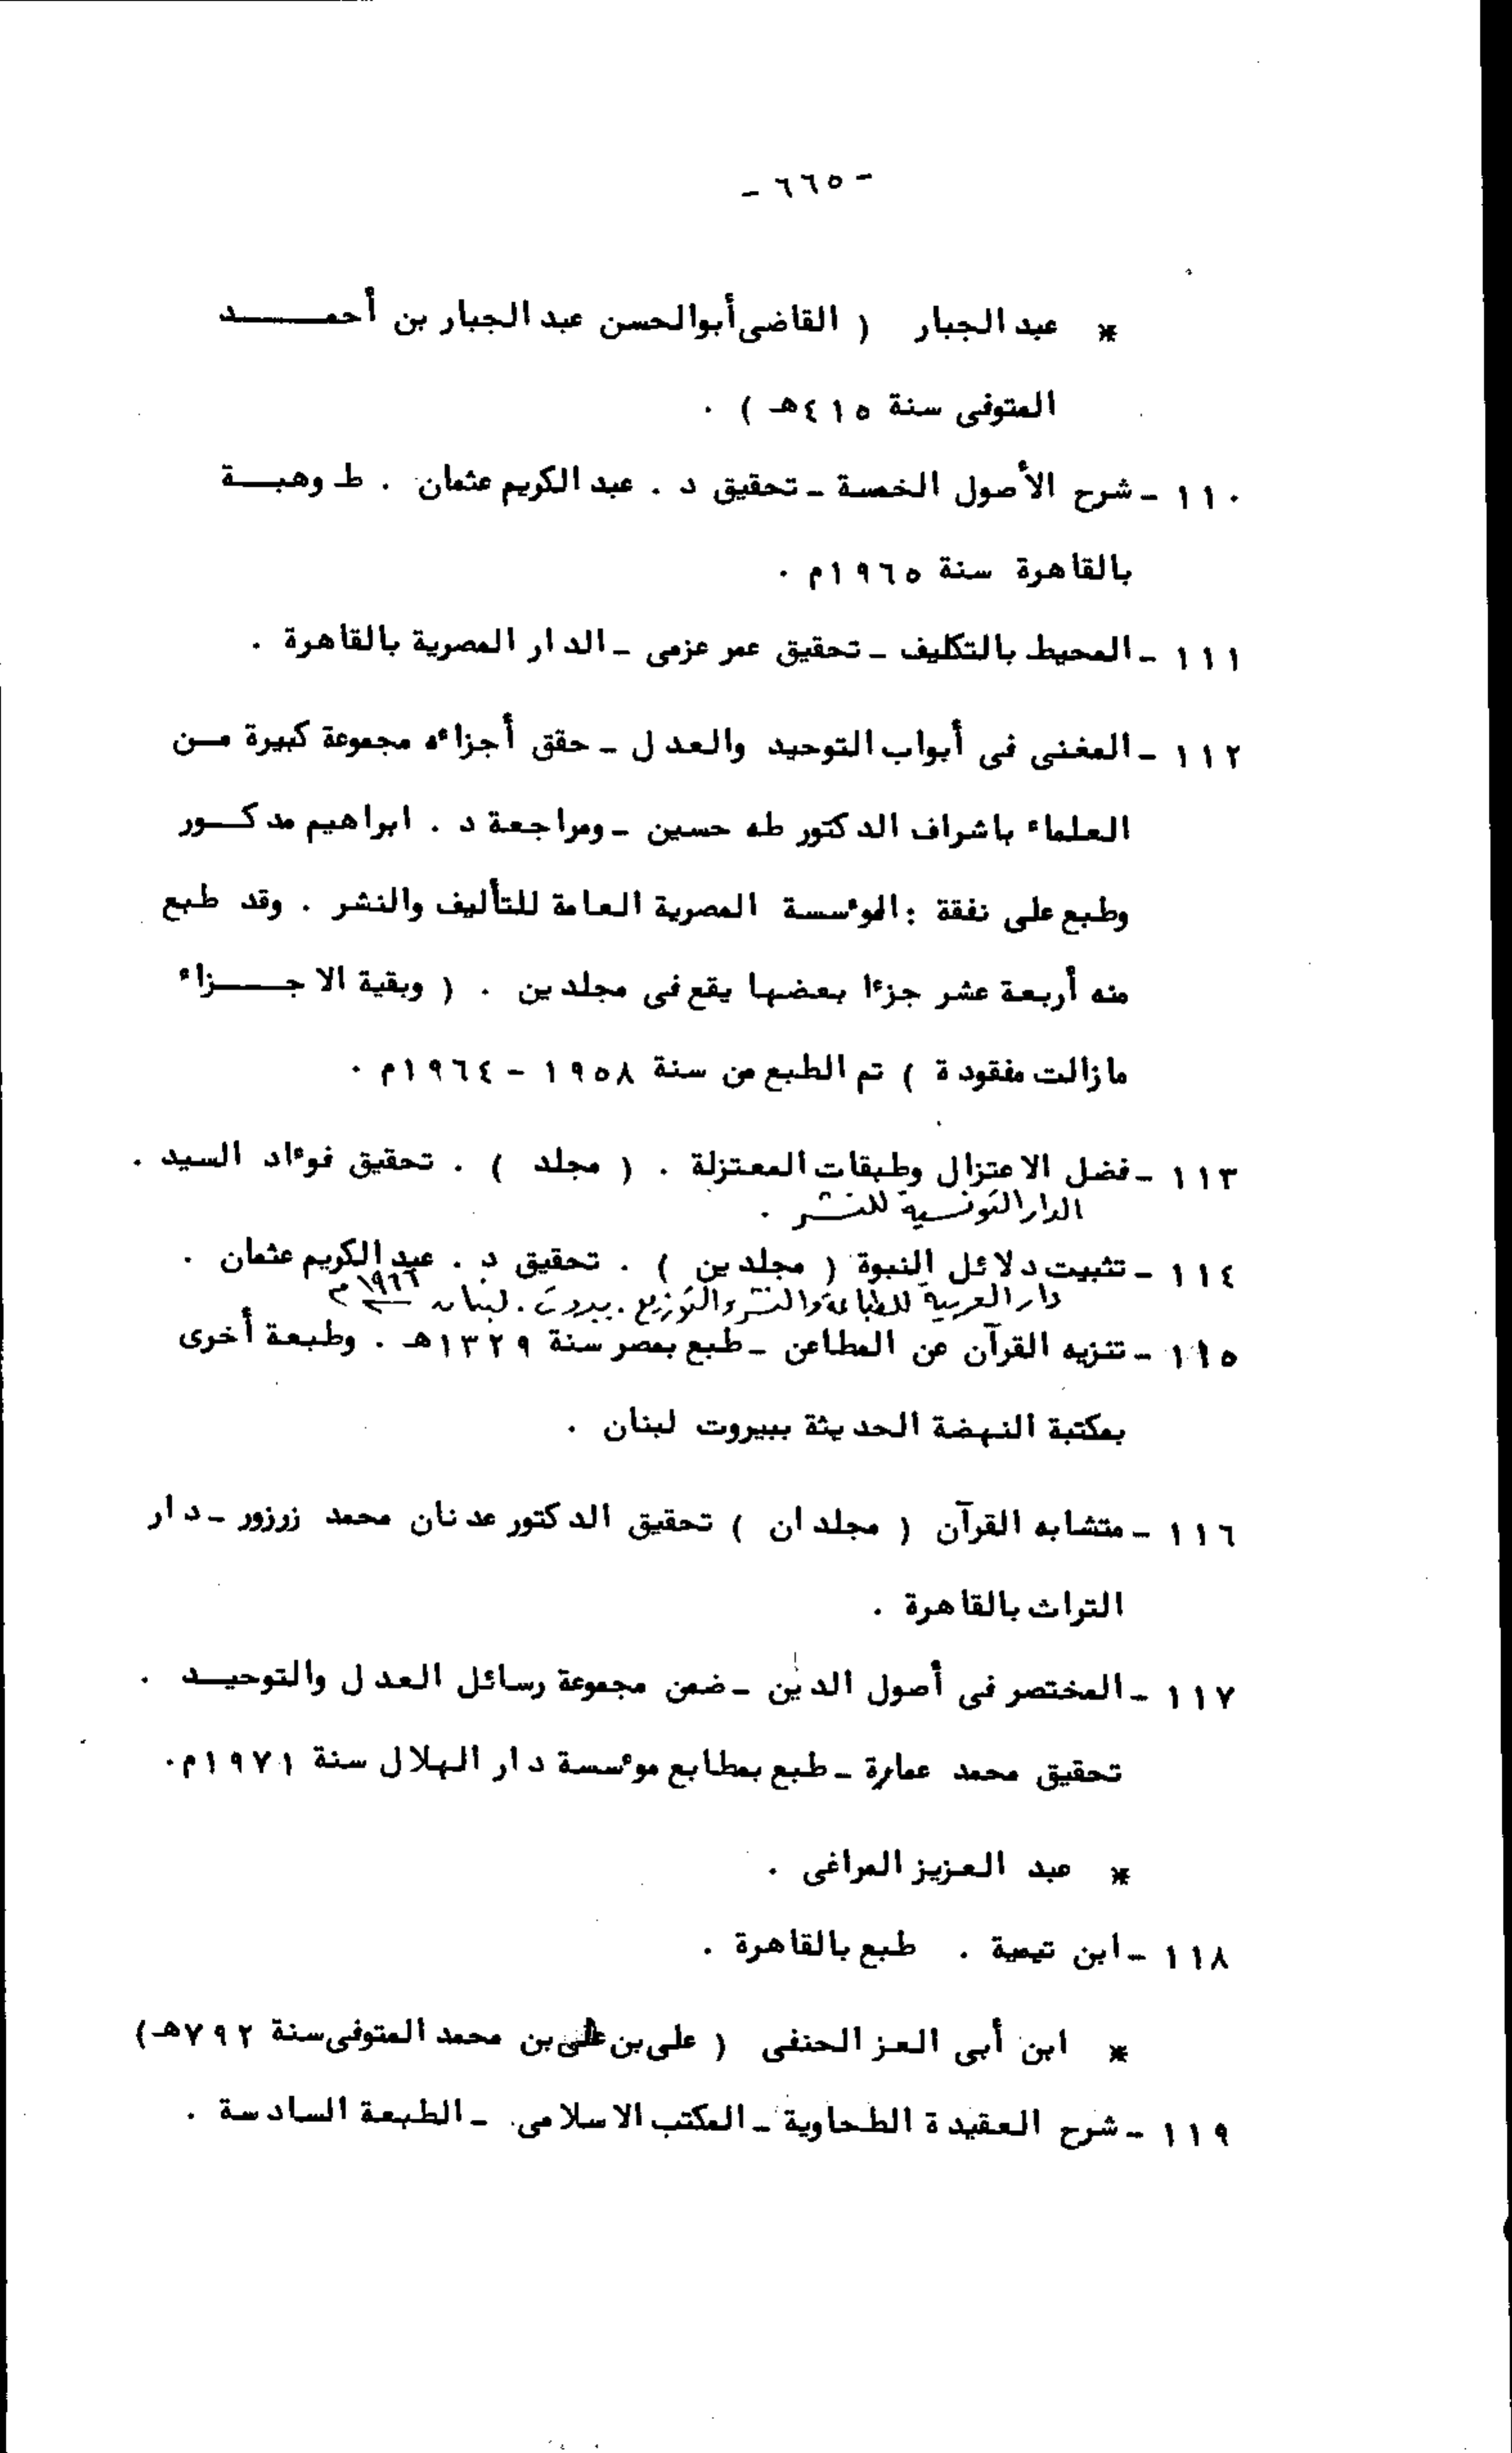 - ٦٦٥ -
* عبد الجبار ( القاضى أبوالحسن عبد الجبار بن أحمـــــد
المتوفى سنة ٤١٥هـ ) .
١١٠ - شرح الأصول الخمسة - تحقيق د . عبد الكريم عثمان . ط وهبـــة
بالقاهرة سنة ١٩٦٥م .
١١١ - المحيط بالتكليف - تحقيق عمر عزمى - الدار المصرية بالقاهرة .
١١٢ - المغنى فى أبواب التوحيد والعدل - حقق أجزاءه مجموعة كبيرة مــن
العلماء باشراف الدكتور طه حسين - ومراجعة د . ابراهيم مدكــور
وطبع على نفقة : الموءسسة المصرية العامة للتأليف والنشر . وقد طبع
منه أربعة عشر جزءا بعضها يقع فى مجلدين . ( وبقية الاجــــزاء
مازالت مفقودة ) تم الطبع من سنة ١٩٥٨ - ١٩٦٤م .
١١٣ - فضل الاعتزال وطبقات المعتزلة . ( مجلد ) . تحقيق فوءاد السيد .
الدار التونسية للنشر .
١١٤ - تثبيت دلائل النبوة ( مجلدين ) . تحقيق د . عبد الكريم عثمان .
دار العربية للطباعة والنشر والتوزيع . بيروت . لبنان ١٩٦٦م
١١٥ - تنزيه القرآن عن المطاعن - طبع بمصر سنة ١٣٢٩هـ . وطبعة أخرى
بمكتبة النهضة الحديثة ببيروت لبنان .
١١٦ - متشابه القرآن ( مجلدان ) تحقيق الدكتور عدنان محمد زرزور - دار
التراث بالقاهرة .
١١٧ - المختصر فى أصول الدين - ضمن مجموعة رسائل العدل والتوحيــد .
تحقيق محمد عمارة - طبع بمطابع موءسسة دار الهلال سنة ١٩٧١م .
* عبد العزيز المراغى .
١١٨ - ابن تيمية . طبع بالقاهرة .
* ابن أبى العز الحنفى ( على بن على بن محمد المتوفى سنة ٧٩٢هـ)
١١٩ - شرح العقيدة الطحاوية - المكتب الاسلامى - الطبعة السادسة .